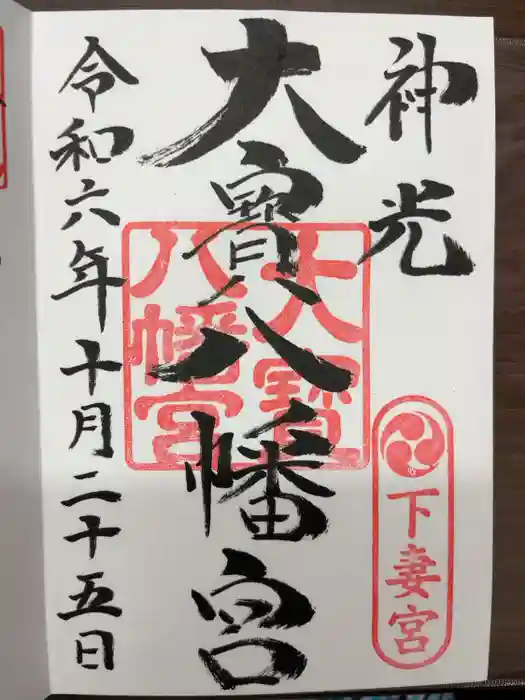 神光
下妻宮
大寳八幡宮
大寳八幡宮
令和六年十月二十五日